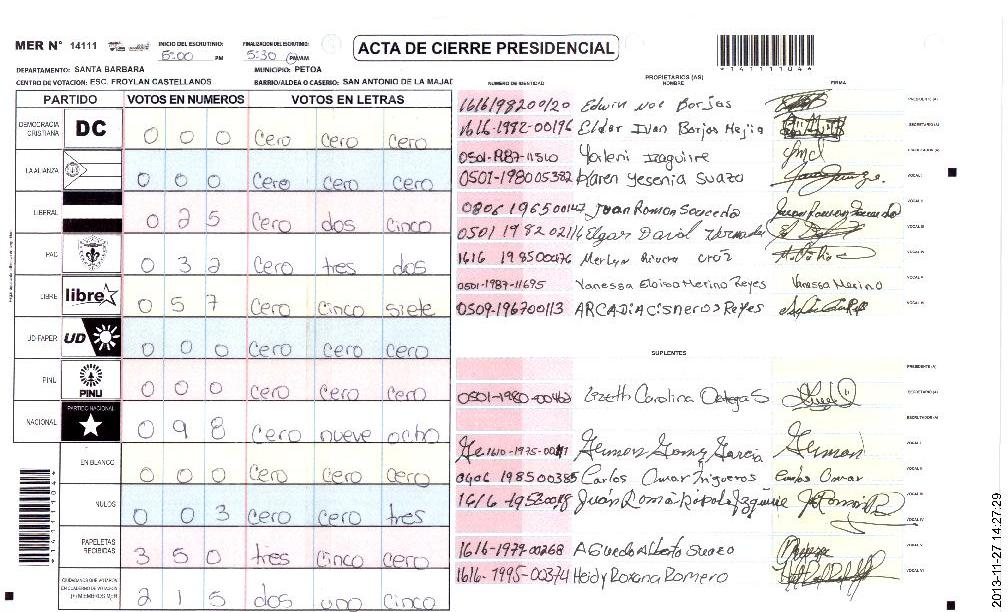 MER N° 14111 INICIO DEL ESCRUTINIO: 5:00 PM FINALIZACION DEL ESCRUTINIO: 5:30 PM/AM ACTA DE CIERRE PRESIDENCIAL *14111104*
DEPARTAMENTO: SANTA BARBARA MUNICIPIO: PETOA
CENTRO DE VOTACION: ESC. FROYLAN CASTELLANOS BARRIO/ALDEA O CASERIO: SAN ANTONIO DE LA MAJAD
PARTIDO VOTOS EN NUMEROS VOTOS EN LETRAS
DEMOCRACIA CRISTIANA DC 0 0 0 Cero Cero Cero
LA ALIANZA 0 0 0 Cero Cero Cero
LIBERAL 0 2 5 Cero dos Cinco
PAC 0 3 2 Cero tres dos
LIBRE libre 0 5 7 Cero Cinco Siete
UD-FAPER UD 0 0 0 Cero Cero Cero
PINU PINU 0 0 0 Cero Cero Cero
NACIONAL PARTIDO NACIONAL 0 9 8 Cero nueve ocho
EN BLANCO 0 0 0 Cero Cero Cero
NULOS 0 0 3 Cero Cero tres
PAPELETAS RECIBIDAS 3 5 0 tres Cinco Cero
CIUDADANOS QUE VOTARON 2 1 5 dos uno Cinco
*14111104*
PROPIETARIOS (AS)
NUMERO DE IDENTIDAD NOMBRE FIRMA
1616198200120 Edwin Noe Borjas PRESIDENTE (A)
1616-1992-00196 Elder Ivan Borjas Mejia SECRETARIO (A)
0501-1987-11510 Yaleni Izaguirre ESCRUTADOR (A)
0501-198005382 Karen Yesenia Suazo VOCAL I
0806 1965 00147 Juan Ramon Saucedo VOCAL II
0501 1982 02114 Elgar David VOCAL III
1616 1985 00476 Merlyn Rivera Cruz VOCAL IV
0501-1987-11695 Vanessa Eloisa Merino Reyes Vanessa Merino VOCAL V
0509-196700113 ARCADIA Cisneros Reyes VOCAL VI
SUPLENTES
PRESIDENTE (A)
0501-1980-00462 Lizeth Carolina Ortega S SECRETARIO (A)
ESCRUTADOR (A)
1610-1975-00 German Gomez Garcia German VOCAL I
0406 198500385 Carlos Omar Trigueros Carlos Omar VOCAL II
1616-1953 Juan Roman VOCAL III
VOCAL IV
1616-1979-00268 Aguedo Alberto Suazo VOCAL V
1616-1995-00374 Heidy Roxana Romero VOCAL VI
2013-11-27 14:27:29